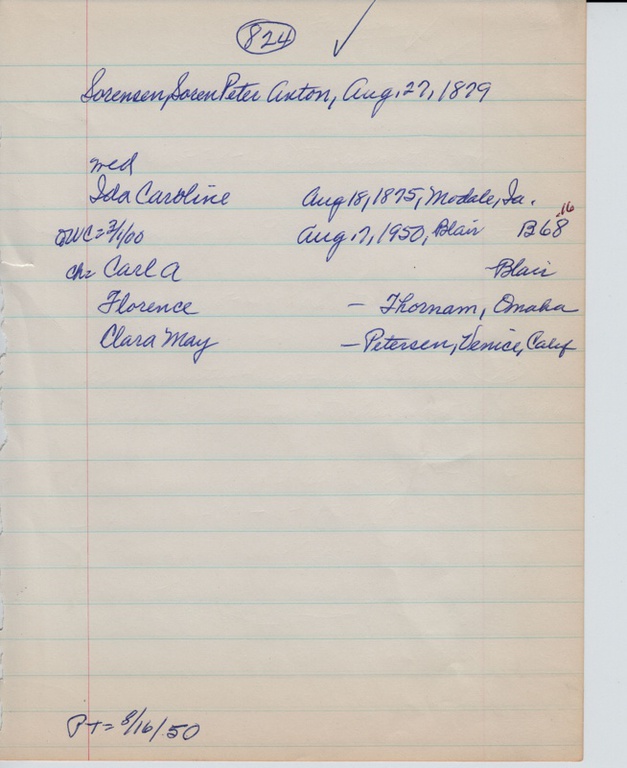 824 ✓
Sorensen, Soren Peter Anton, Aug. 27, 1879
med
Ida Caroline Aug 18, 1875, Modale, Ia.
.16
=2/1/00 Aug. 7, 1950, Blair B68
ch= Carl A - Blair
Florence - Thornam, Omaha
Clara May - Petersen, Venice, Calif
PT= 8/16/50